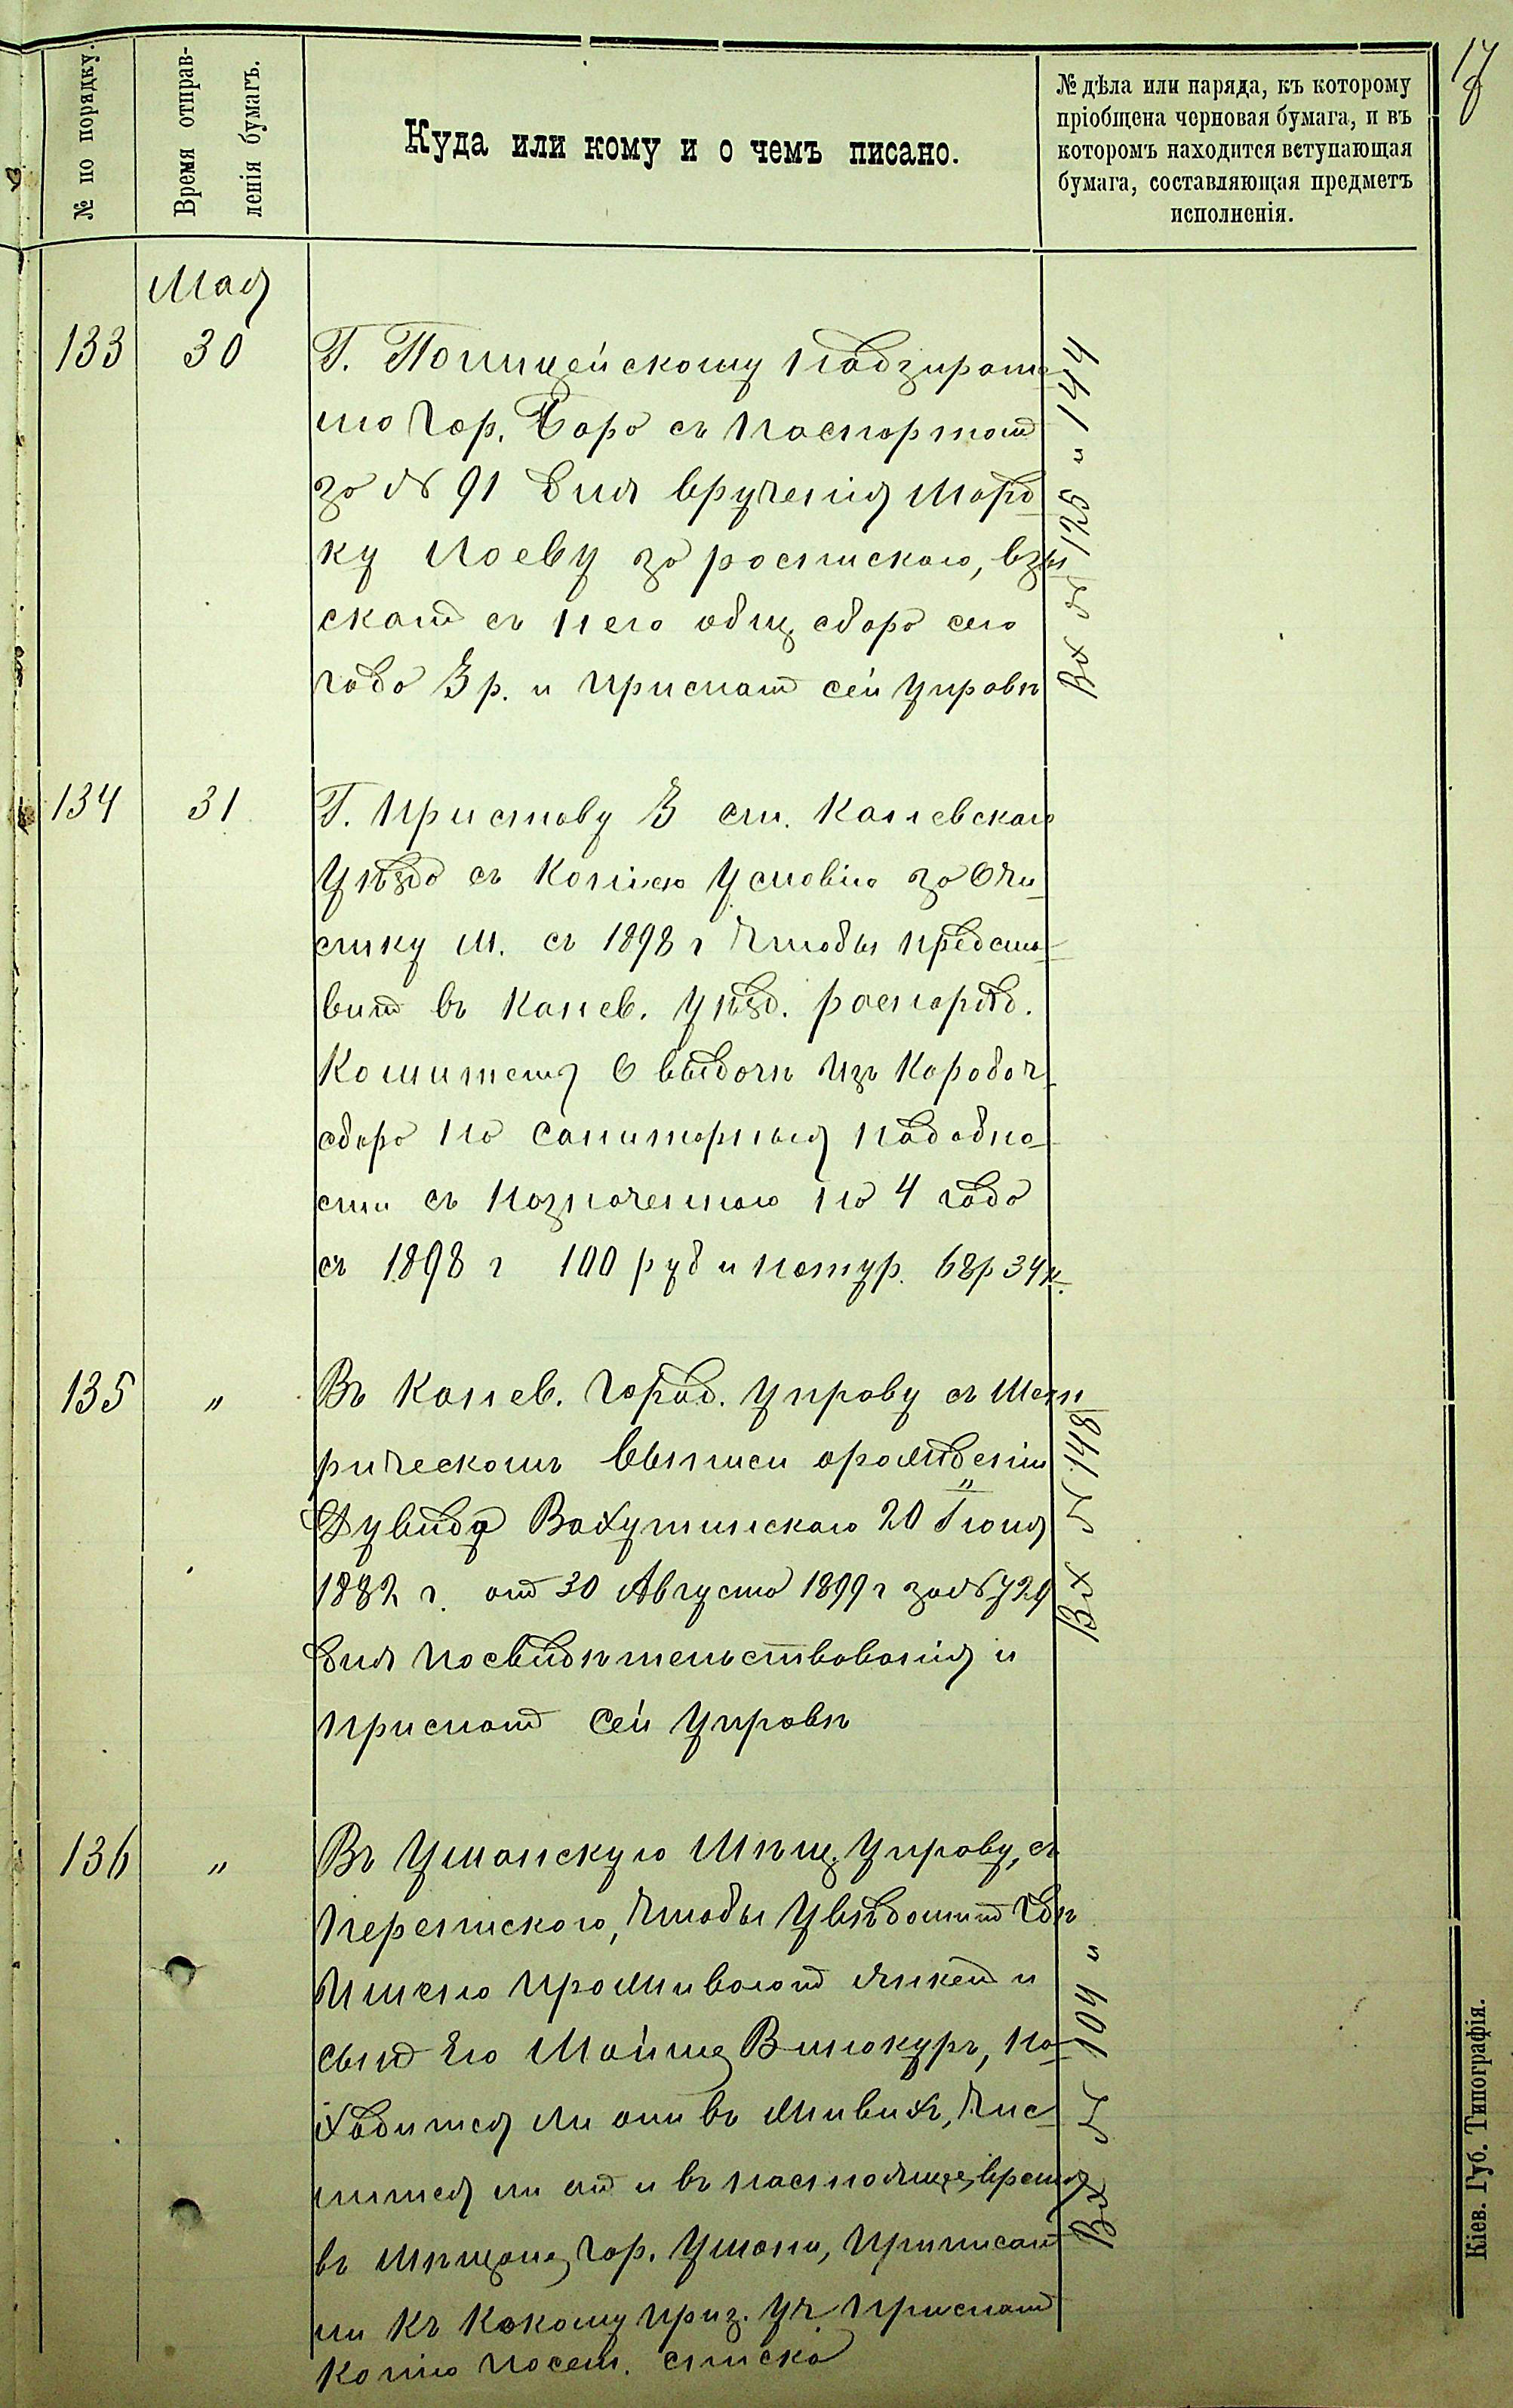 17
№ по порядку.
Время отправ-
ленія бумагъ.
Куда или кому и о чемъ писано.
№ дѣла или наряда, къ которому
пріобщена черновая бумага, и въ
которомъ находится вступающая
бумага, составляющая предметъ
исполненія.
Мая
133 30 Г. Полицейскому Надзирате-
лю Гор. с паспортом
за № 91 для врученія Морд-
ку за роспискою, взы
скат съ него общ. сбора сего
года 3 р. и прислат сей управѣ
Вх № 125 и 144
134 31 Г. Приставу 3 ст. Каневскаго
уѣзда съ копіею условію за очи-
стку м. съ 1898 г чтобы предста-
вит въ Канев. уѣзд. распоряд.
Комитетъ о выдачѣ изъ Коробоч.
сбора на санитарныя надобно-
сти съ назначенною на 4 года
съ 1898 г 100 руб и натур. 68р 34к.
135 " Въ Канев. Город. управу съ мет
рическомъ выписи о рожденіи
Дувида 20 Іюня
1882 г. от 30 Августа 1899 г за № 729
для посвидѣтельствованія и
прислат сей управѣ
Вх № 148
136 " Въ Уманскую Мѣщ. управу, съ
перепискою, чтобы увѣдомит гдѣ
имено проживают и
сын его Мойше Винокуръ, на-
ходится ли они въ живих, чис-
лится ли он и въ настоящее время
въ мѣщане гор. Умани, приписан
ли къ какому приз. уч. прислат
копію посем. списка
Вх № 104 и
Кіев. Губ. Типографія.